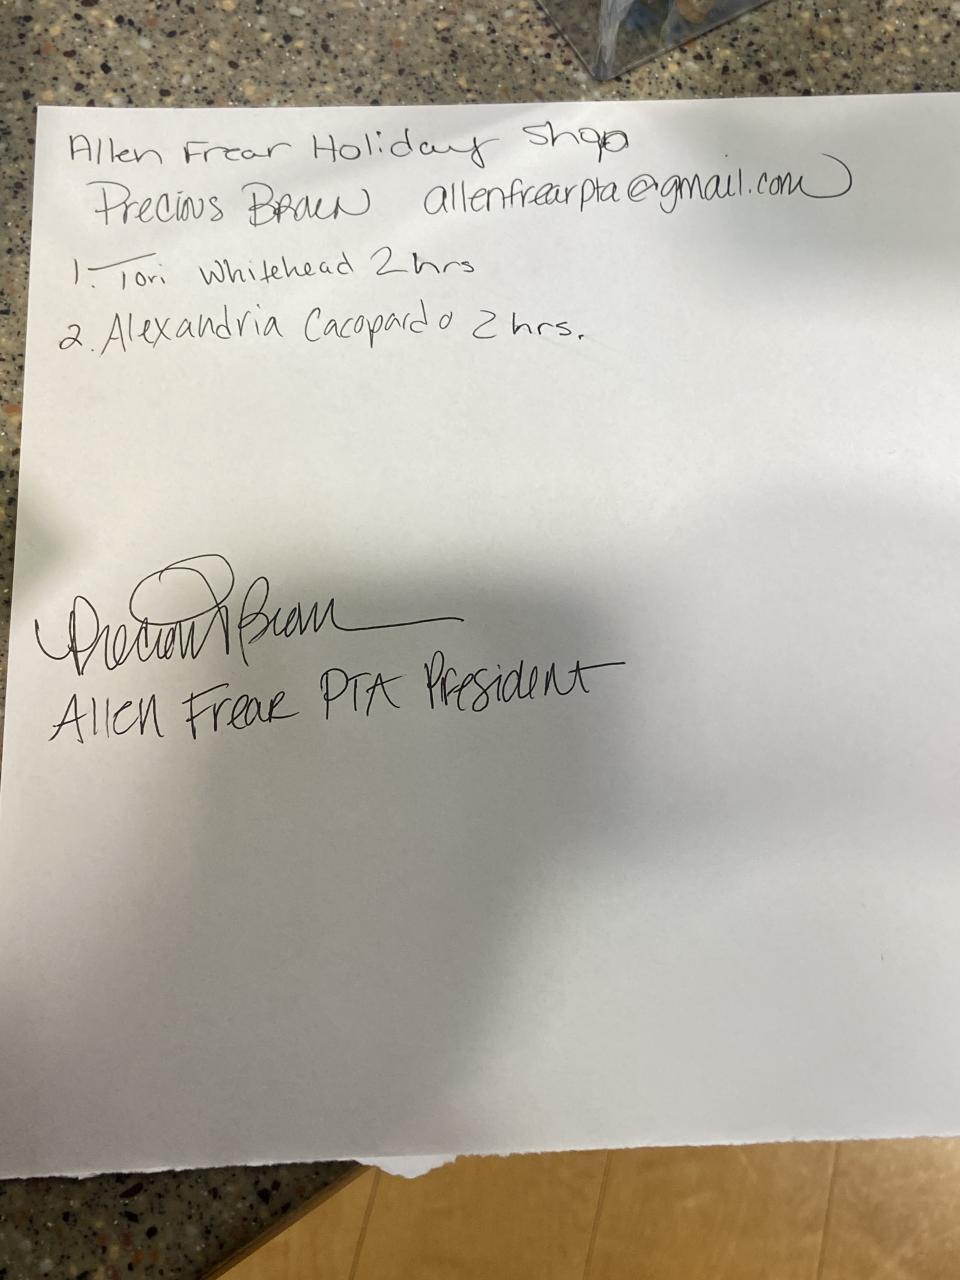 Allen Frear Holiday Shop
Precious Braen allenfrearpta@gmail.com
1. Tori Whitehead 2 hrs
2. Alexandria Cacopardo 2 hrs.
Precious
Allen Frear PTA President